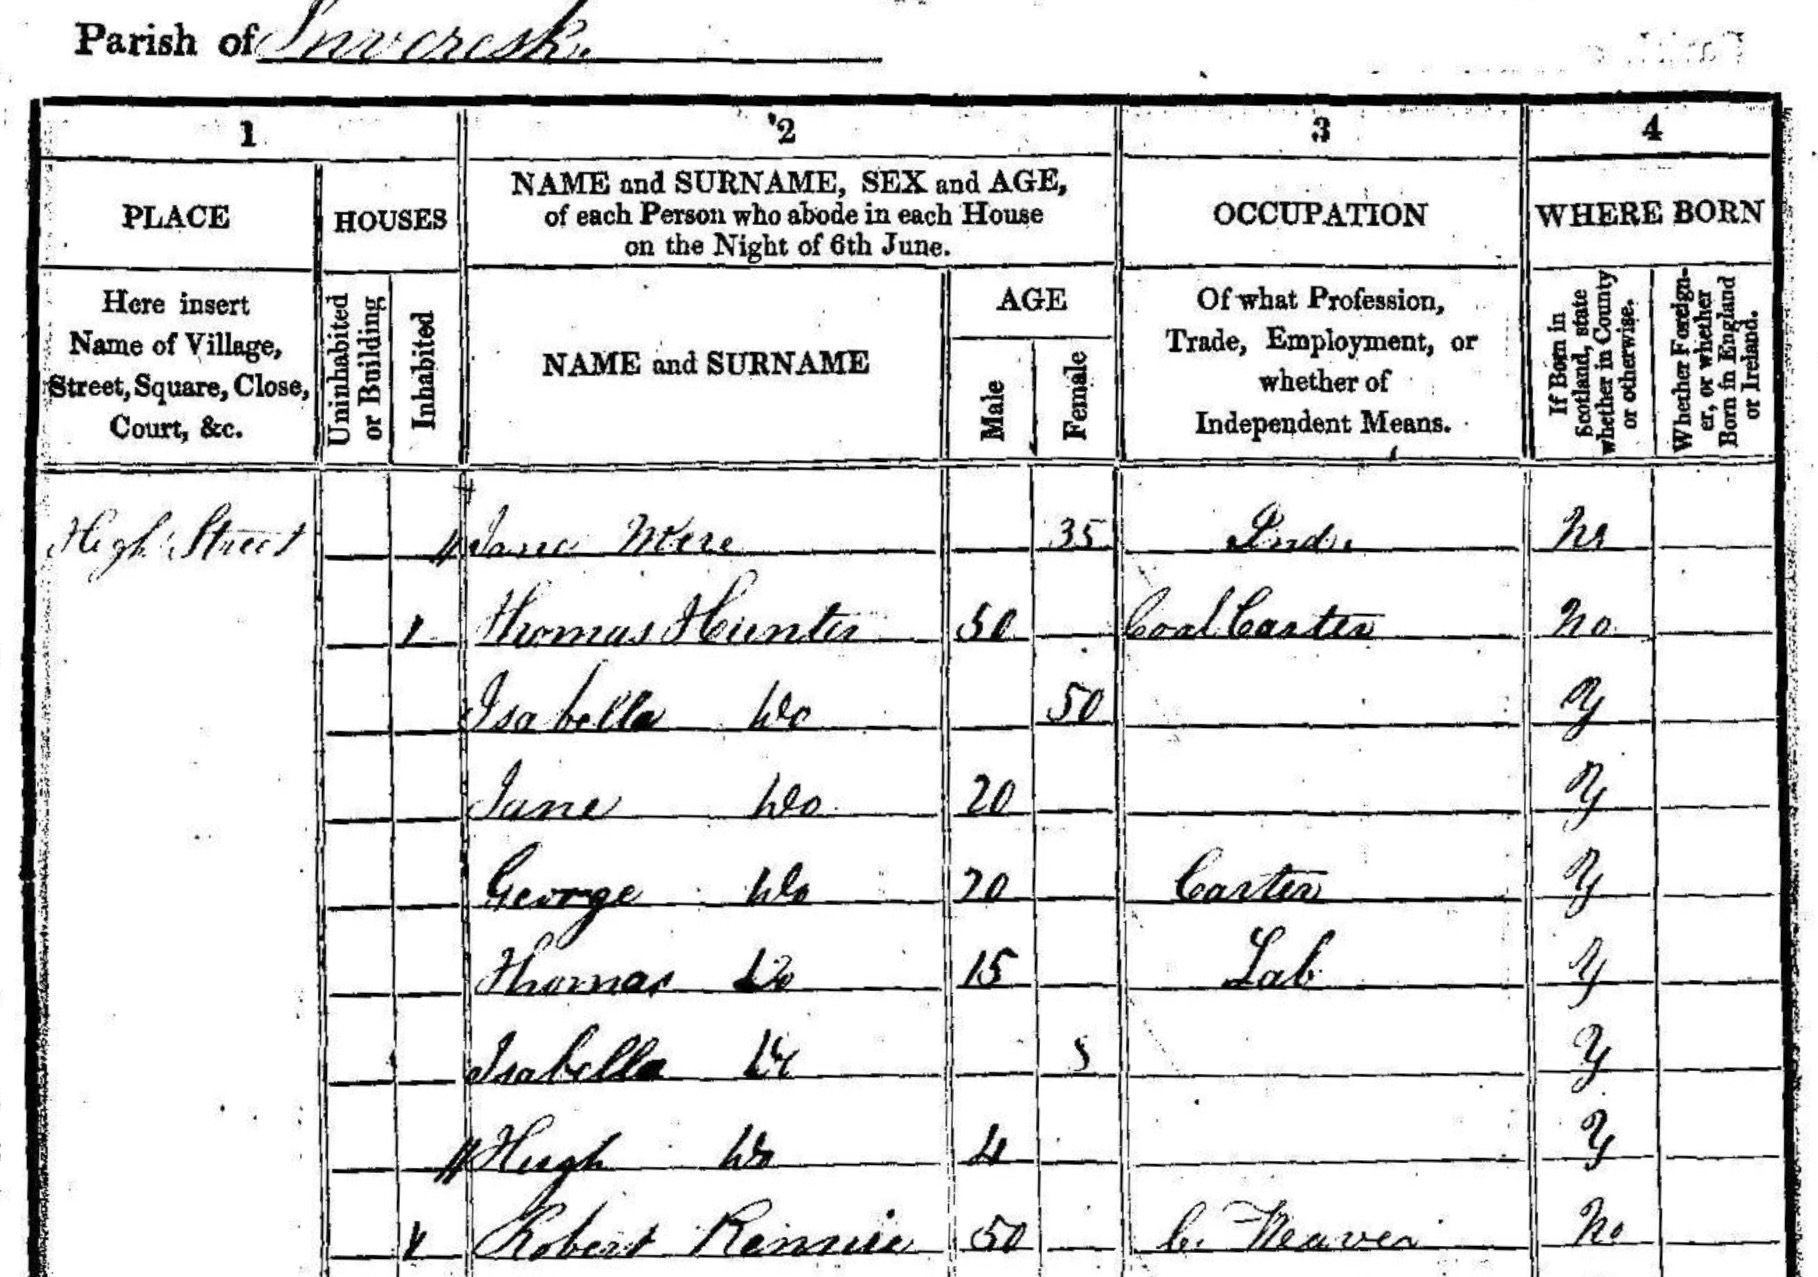 Parish of Inveresk
1 2 3 4
PLACE HOUSES NAME and SURNAME, SEX and AGE, of each Person who abode in each House on the Night of 6th June. OCCUPATION WHERE BORN
Here insert Name of Village, Street, Square, Close, Court, &c.
Uninhabited or Building
Inhabited
NAME and SURNAME
AGE
Male
Female
Of what Profession, Trade, Employment, or whether of Independent Means.
If Born in Scotland, state whether in County or otherwise.
Whether Foreigner, or whether Born in England or Ireland.
High Street Jane 35 Ind. No
1 Thomas Hunter 50 Coal Carter No
Isabella Do 50 Y
Jane Do 20 Y
George Do 20 Carter Y
Thomas Do 15 Lab Y
Isabella Do Y
Hugh Do 4 Y
1 Robert Rennie 50 C. Weaver No